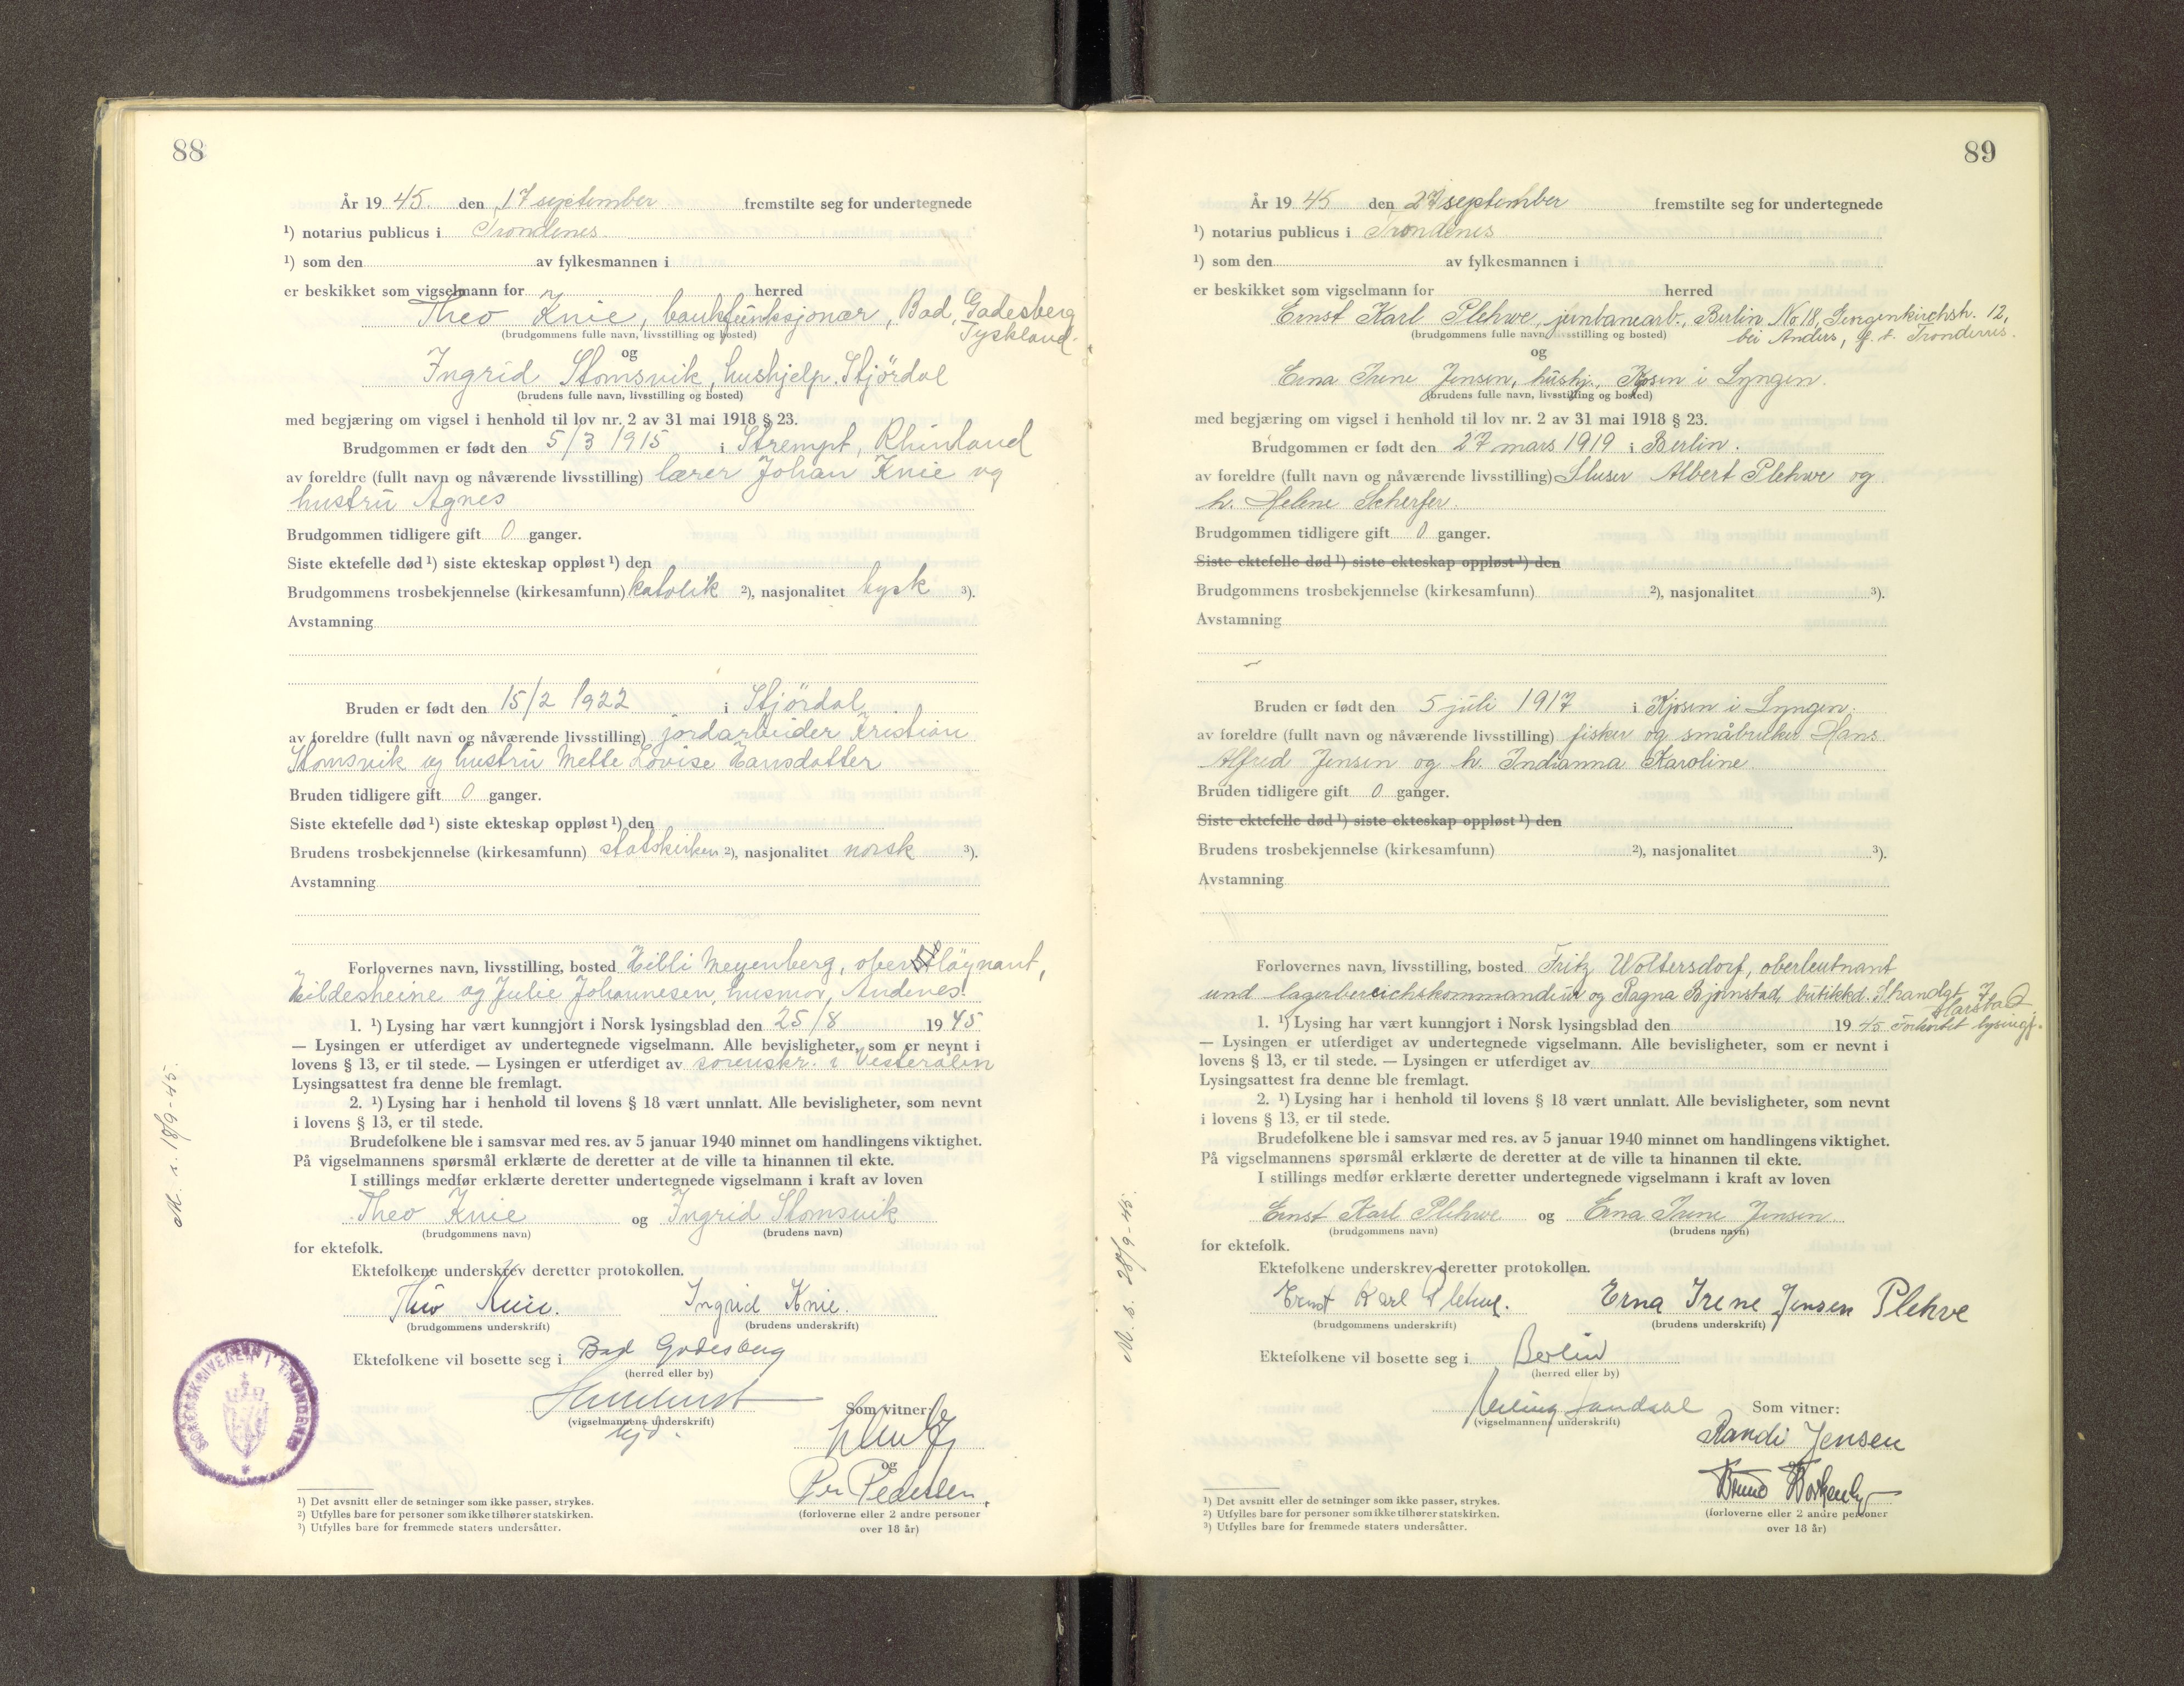 88
År 19 45. den 17 september fremstilte seg for undertegnede
¹) notarius publicus i Trondenes.
¹) som den av fylkesmannen i
er beskikket som vigselmann for herred
Theo Knie, bankfunksjonær, Bad, Godesberg
Tyskland.
(brudgommens fulle navn, livsstilling og bosted)
og
Ingrid Stomsvik, hushjelp. Stjördal
(brudens fulle navn, livsstilling og bosted)
med begjæring om vigsel i henhold til lov nr. 2 av 31 mai 1918 § 23.
Brudgommen er født den 5/3 1915 i Strempt, Rhinland
av foreldre (fullt navn og nåværende livsstilling) lærer Johan Knie og
hustru Agnes
Brudgommen tidligere gift 0 ganger.
Siste ektefelle død ¹) siste ekteskap oppløst ¹) den
Brudgommens trosbekjennelse (kirkesamfunn) katolik ²), nasjonalitet tysk ³).
Avstamning
Bruden er født den 15/2 1922 i Stjördal
av foreldre (fullt navn og nåværende livsstilling) jordarbeider Kristian
Stomsvik og hustru Mette Lovise Hansdatter
Bruden tidligere gift 0 ganger.
Siste ektefelle død ¹) siste ekteskap oppløst ¹) den
Brudens trosbekjennelse (kirkesamfunn) statskirken ²), nasjonalitet norsk ³).
Avstamning
Forlovernes navn, livsstilling, bosted Hilli Meyenberg, oberstløynant,
Hildesheine og Julie Johannesen, husmor, Andenes.
1. ¹) Lysing har vært kunngjort i Norsk lysingsblad den 25/8 1945
— Lysingen er utferdiget av undertegnede vigselmann. Alle bevisligheter, som er nevnt i
lovens § 13, er til stede. — Lysingen er utferdiget av sorenskr. i Vesterålen
Lysingsattest fra denne ble fremlagt.
2. ¹) Lysing har i henhold til lovens § 18 vært unnlatt. Alle bevisligheter, som nevnt
i lovens § 13, er til stede.
Brudefolkene ble i samsvar med res. av 5 januar 1940 minnet om handlingens viktighet.
På vigselmannens spørsmål erklærte de deretter at de ville ta hinannen til ekte.
I stillings medfør erklærte deretter undertegnede vigselmann i kraft av loven
Theo Knie og Ingrid Stomsvik
(brudgommens navn) (brudens navn)
for ektefolk.
Ektefolkene underskrev deretter protokollen.
Theo Knie. Ingrid Knie.
(brudgommens underskrift) (brudens underskrift)
Ektefolkene vil bosette seg i Bad Godesberg
(herred eller by)
Som vitner:
(vigselmannens underskrift)
og
Per Pedersen.
(forloverne eller 2 andre personer
over 18 år)
¹) Det avsnitt eller de setninger som ikke passer, strykes.
²) Utfylles bare for personer som ikke tilhører statskirken.
³) Utfylles bare for fremmede staters undersåtter.
M. s. 18/9-45.
SORENSKRIVEREN I TRONDENES
89
År 19 45 den 27 september fremstilte seg for undertegnede
¹) notarius publicus i Trondenes
¹) som den av fylkesmannen i
er beskikket som vigselmann for herred
Ernst Karl Plehwe, jernbanearb., Berlin No 18, Georgenkirchstr. 12,
bei Anders, p. t. Trondenes.
(brudgommens fulle navn, livsstilling og bosted)
og
Erna Irene Jensen, hushj., Kjosen i Lyngen.
(brudens fulle navn, livsstilling og bosted)
med begjæring om vigsel i henhold til lov nr. 2 av 31 mai 1918 § 23.
Brudgommen er født den 27 mars 1919 i Berlin.
av foreldre (fullt navn og nåværende livsstilling) Sluser Albert Plehwe og
h. Helene Scherfer.
Brudgommen tidligere gift 0 ganger.
Siste ektefelle død ¹) siste ekteskap oppløst ¹) den
Brudgommens trosbekjennelse (kirkesamfunn) ²), nasjonalitet ³).
Avstamning
Bruden er født den 5 juli 1917 i Kjosen i Lyngen.
av foreldre (fullt navn og nåværende livsstilling) fisker og småbruker Hans
Alfred Jensen og h. Indianna Karoline
Bruden tidligere gift 0 ganger.
Siste ektefelle død ¹) siste ekteskap oppløst ¹) den
Brudens trosbekjennelse (kirkesamfunn) ²), nasjonalitet ³).
Avstamning
Forlovernes navn, livsstilling, bosted Fritz Woltersdorf, oberleutnant
und lagerbereichskommandeur og Ragna Bjørnstad, butikkd. Strandgt 7
Harstad
1. ¹) Lysing har vært kunngjort i Norsk lysingsblad den 19 45 Forkortet lysingsf.
— Lysingen er utferdiget av undertegnede vigselmann. Alle bevisligheter, som er nevnt i
lovens § 13, er til stede. — Lysingen er utferdiget av
Lysingsattest fra denne ble fremlagt.
2. ¹) Lysing har i henhold til lovens § 18 vært unnlatt. Alle bevisligheter, som nevnt
i lovens § 13, er til stede.
Brudefolkene ble i samsvar med res. av 5 januar 1940 minnet om handlingens viktighet.
På vigselmannens spørsmål erklærte de deretter at de ville ta hinannen til ekte.
I stillings medfør erklærte deretter undertegnede vigselmann i kraft av loven
Ernst Karl Plehwe og Erna Irene Jensen
(brudgommens navn) (brudens navn)
for ektefolk.
Ektefolkene underskrev deretter protokollen.
Ernst Karl Plehwe. Erna Irene Jensen Plehve
(brudgommens underskrift) (brudens underskrift)
Ektefolkene vil bosette seg i Berlin
(herred eller by)
Som vitner:
(vigselmannens underskrift)
Randi Jensen
Bruno
(forloverne eller 2 andre personer
over 18 år)
¹) Det avsnitt eller de setninger som ikke passer, strykes.
²) Utfylles bare for personer som ikke tilhører statskirken.
³) Utfylles bare for fremmede staters undersåtter.
M. s. 28/9-45.